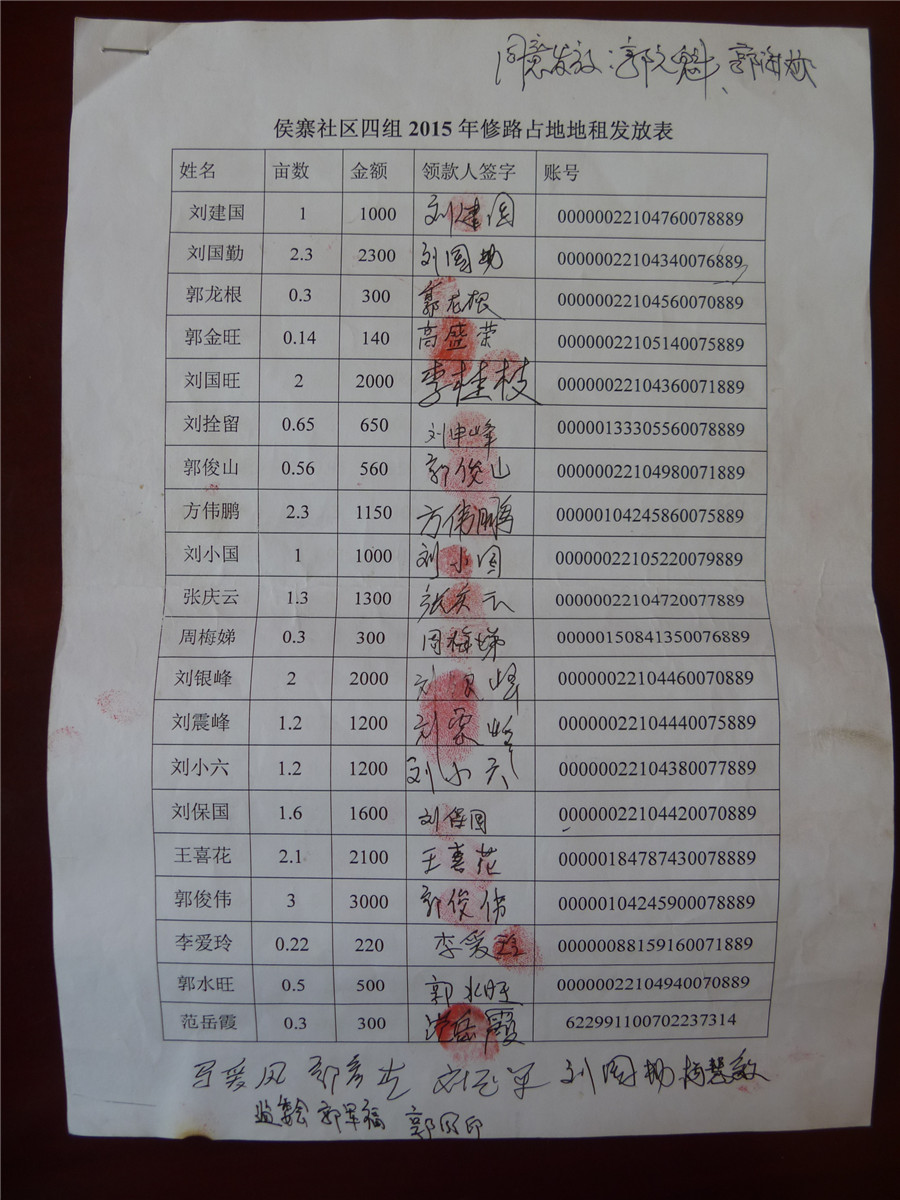 同意发放:郭元魁、郭海斌
侯寨社区四组 2015 年修路占地地租发放表
姓名 亩数 金额 领款人签字 账号
刘建国 1 1000 刘建国 00000022104760078889
刘国勤 2.3 2300 刘国勤 00000022104340076889
郭龙根 0.3 300 郭龙根 00000022104560070889
郭金旺 0.14 140 高盛荣 00000022105140075889
刘国旺 2 2000 李桂枝 00000022104360071889
刘拴留 0.65 650 刘申峰 00000133305560078889
郭俊山 0.56 560 郭俊山 00000022104980071889
方伟鹏 2.3 1150 方伟鹏 00000104245860075889
刘小国 1 1000 刘小国 00000022105220079889
张庆云 1.3 1300 张庆云 00000022104720077889
周梅娣 0.3 300 周梅娣 00000150841350076889
刘银峰 2 2000 刘银峰 00000022104460070889
刘震峰 1.2 1200 刘震峰 00000022104440075889
刘小六 1.2 1200 刘小六 00000022104380077889
刘保国 1.6 1600 刘保国 00000022104420070889
王喜花 2.1 2100 王喜花 00000184787430078889
郭俊伟 3 3000 郭俊伟 00000104245900078889
李爱玲 0.22 220 李爱玲 00000088159160071889
郭水旺 0.5 500 郭水旺 00000022104940070889
范岳霞 0.3 300 范岳霞 622991100702237314
马爱风 郭彦 刘 刘国勤 杨慧敏
监委会 郭军福 郭风印